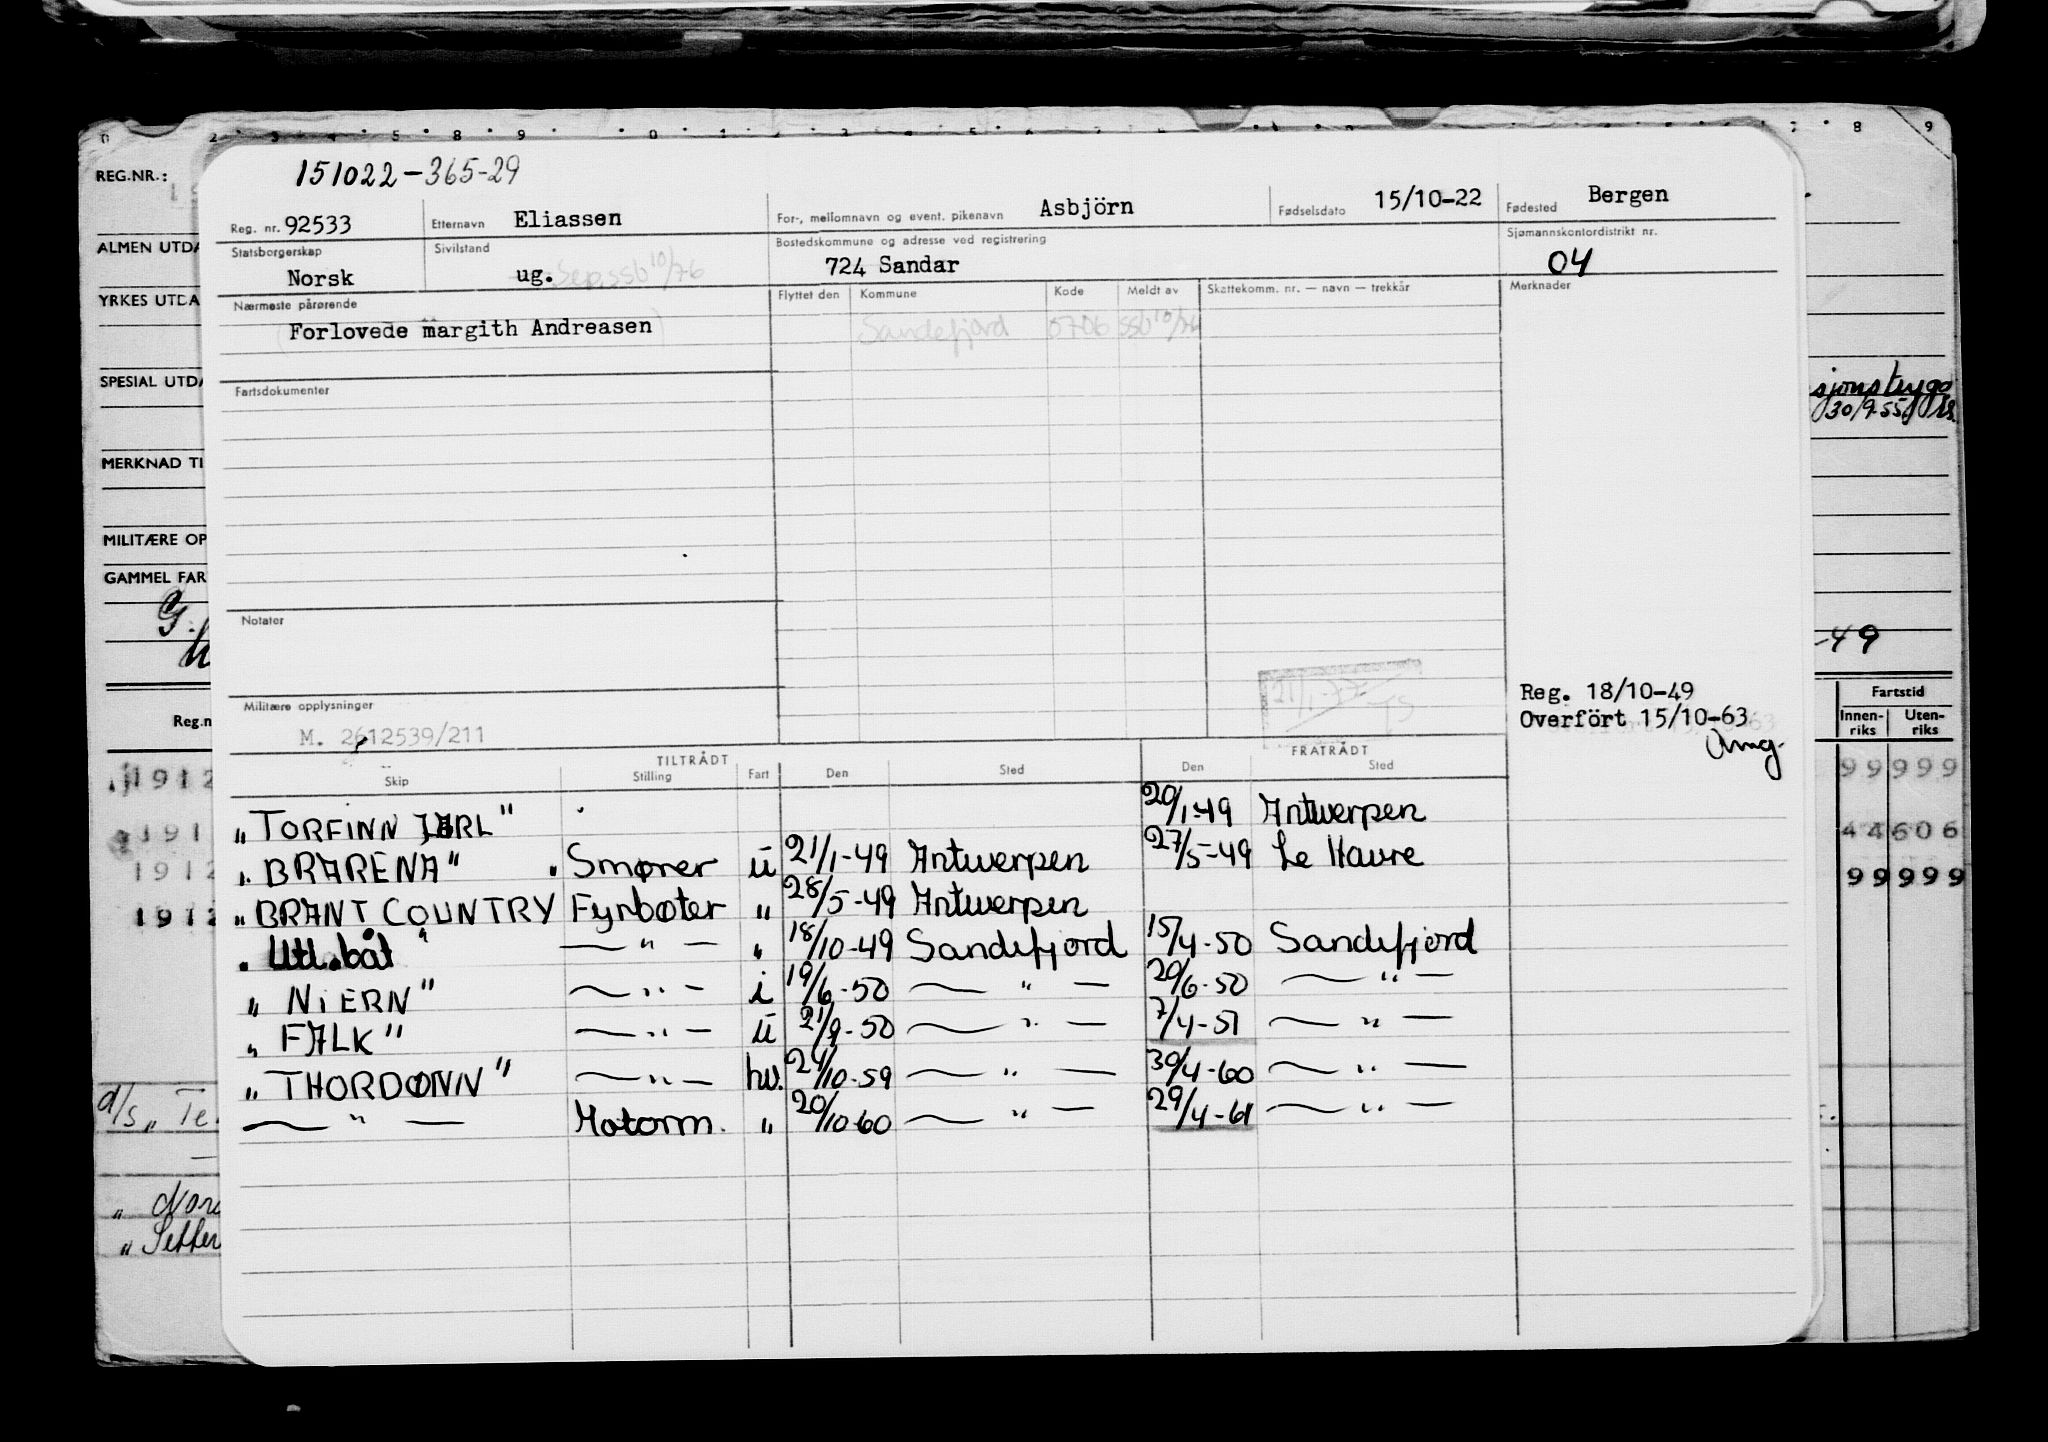 151022-365-29
REG.NR.:
Reg. nr. 92533 Etternavn Eliassen For-, mellomnavn og event. pikenavn Asbjörn Fødselsdato 15/10-22 Fødested Bergen
ALMEN UTDA
Statsborgerskap Norsk Sivilstand ug. Sep. ssb 10/76 Bostedskommune og adresse ved registrering 724 Sandar Sjømannskontordistrikt nr. 04
YRKES UTDA
Nærmeste pårørende Flyttet den Kommune Kode Meldt av Skattekomm. nr. — navn — trekkår Merknader
Forlovede margith Andreasen Sandefjord 0706 ssb 10/76
SPESIAL UTDA
Fartsdokumenter
30/9-55
MERKNAD TI
MILITÆRE OP
GAMMEL FAR
G.
Notater
-49
Militære opplysninger
M. 2612539/211
21/1-77
Reg. 18/10-49
Overfört 15/10-63
Reg.n
Fartstid
Innen-riks Uten-riks
TILTRÅDT FRATRÅDT
Skip Stilling Fart Den Sted Den Sted
"TORFINN JARL" 20/1-49 Antwerpen
"BRARENA" Smører u 21/1-49 Antwerpen 27/5-49 Le Havre
"BRANT COUNTRY Fyrbøter " 28/5-49 Antwerpen
" Utl. båt " — " — " 18/10-49 Sandefjord 15/4-50 Sandefjord
" NIERN " — " — i 19/6-50 — " — 20/6-50 — " —
" FALK " — " — u 21/9-50 — " — 7/4-51 — " —
" THORDØNN " — " — hv. 24/10-59 — " — 30/4-60 — " —
— " — Motorm. " 20/10-60 — " — 29/4-61 — " —
1912 99999
191 44606
1912 99999
1912
d/s " Te
" Nord
" Setter